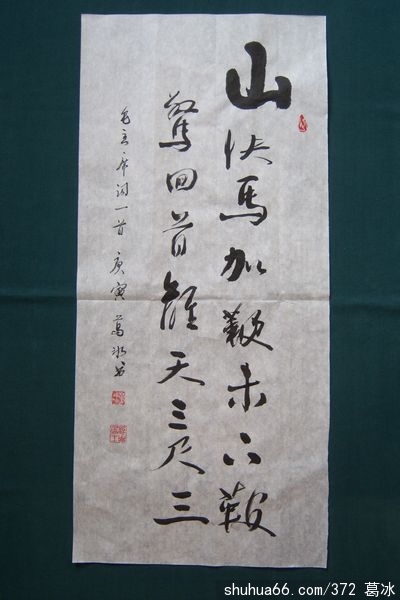 山快馬加鞭未下鞍
驚回首離天三尺三
毛主席词一首 庚寅 葛冰书
shuhua66.com/372 葛冰